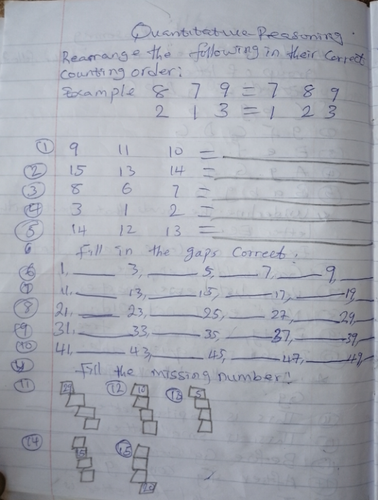 Quantitative Reasoning.
Rearrange the following in their correct
counting order:
Example 8 7 9 = 7 8 9
2 1 3 = 1 2 3
① 9 11 10 =
② 15 13 14 =
③ 8 6 7 =
④ 3 1 2 =
⑤ 14 12 13 =
6 Fill in the gaps correct.
⑥ 1, ___ 3, ___ 5, ___ 7, ___ 9, ___
11, ___ 13, ___ 15, ___ 17, ___ 19,
⑧ 21, ___ 23, ___ 25, ___ 27, ___ 29,
⑨ 31, ___ 33, ___ 35, ___ 37, ___ 39,
⑩ 41, ___ 43, ___ 45, ___ 47, ___ 49,
Fill the missing number!
⑪ ⑫ ⑬ 5
⑭ ⑮